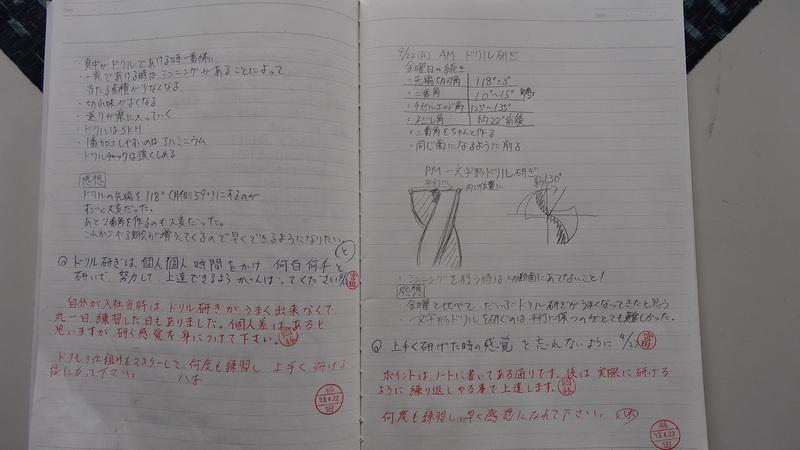 真中がドリルであける時一番偉い
・一発であける時はシンニングがあることによって
当たる面積が少なくなる
・切れ味がよくなる
・送りが楽に入っていく
・ドリルはSKH
・1番加工しやすいのはアルミニウム
・ドリルチャックは強くしめる
感想
ドリルの先端を118°(片側59°)にするのが
すごく大変だった。
あと2番角を作るのも大変だった。
これからやる機会が増えてくるので早くできるようになりたい
と
ドリル研ぎは、個人個人時間をかけ 何百何千と
研いで、努力して、上達できるようがんばってください。
自分が入社当時は、ドリル研ぎがうまく出来なくて、
丸一日練習した日もありました。個人差はあると
思いますが、研ぐ感覚を身につけて下さい。
ドリルの仕組みをマスターして、何度も練習し 上手く研げる
様になって下さい。
13.4.22
4/22(月) AM ドリル研ぎ
金曜日の続き
・先端切刃角 118°±3°
・二番角 10°~15°
・チゼルエッジ角 125°~135°
・ねじれ角 約22°前後
・二番角をちゃんと作る
・同じ面になるように削る
PM 一文字形ドリル研ぎ
平行に
同じ位置に
約130°
・シンニングを行う時は切断面にあてないこと!
感想
金曜と比べて、だいぶドリル研ぎがうまくなってきたと思う
一文字形ドリルを研ぐのは、平行に保つのがとても難しかった。
上手く研げた時の感覚を忘れないように 4/23
ポイントは、ノートに書いてある通りです。後は実際に研げる
ように繰り返しやる事で上達します。
何度も練習し、早く感覚になれて下さい。
13.4.23